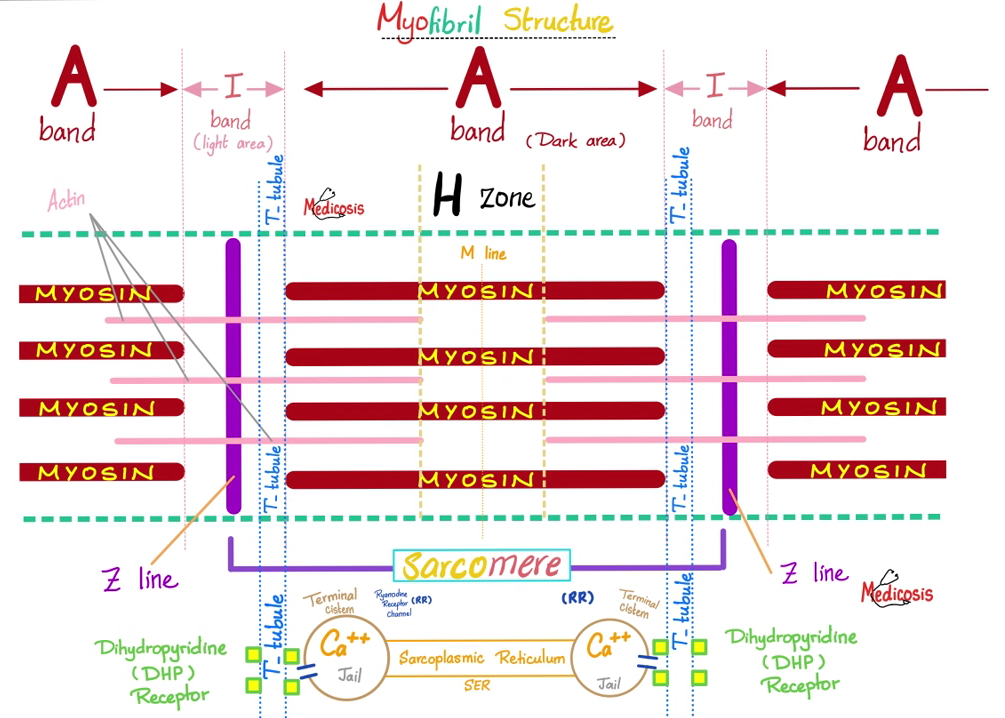 Myofibril Structure
A
band
I
band
(light area)
A
band
(Dark area)
I
band
A
band
T-tubule
T-tubule
Actin
Medicosis
H zone
M line
MYOSIN
MYOSIN
MYOSIN
MYOSIN
MYOSIN
MYOSIN
MYOSIN
MYOSIN
MYOSIN
MYOSIN
MYOSIN
MYOSIN
T-tubule
T-tubule
Z line
Sarcomere
Z line
Medicosis
T-tubule
Terminal
Cistern
Ryanodine
Receptor
Channel
(RR)
(RR)
Terminal
Cistern
T-tubule
Dihydropyridine
(DHP)
Receptor
Ca++
Jail
Sarcoplasmic Reticulum
SER
Ca++
Jail
Dihydropyridine
(DHP)
Receptor